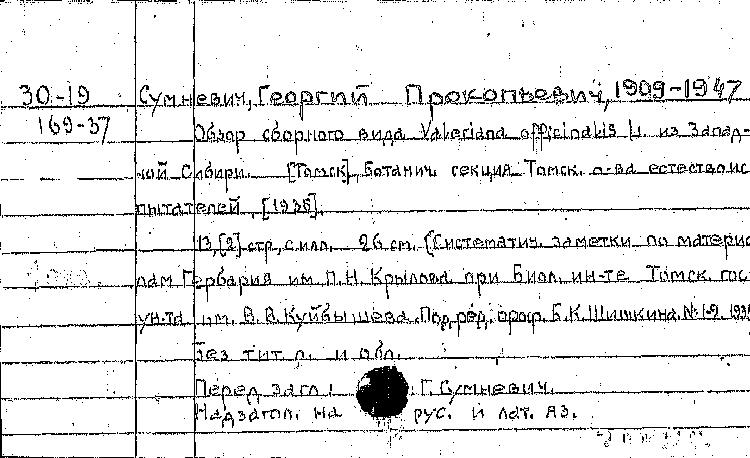 30-19 Сумневич, Георгий Прокопьевич, 1909-1947
169-37 Обзор сборного вида Valeriana officinalis L. из Запад-
ной Сибири. [Томск], Ботанич. секция Томск. о-ва естествоис-
пытателей, [1935].
13,[2] стр., с илл. 26 см. (Систематич. заметки по материа
лам Гербария им. П.Н. Крылова при Биол. ин-те Томск. гос
ун-та им. В.В. Куйбышева. Под ред. проф. Б.К. Шишкина. № 1-2, 1935
Без тит. л. и обл.
Перед загл.: Г. Сумневич.
Надзагол. на рус. и лат. яз.